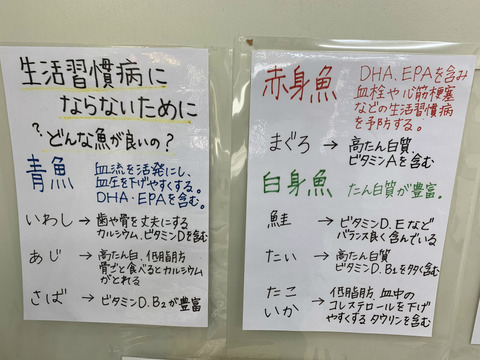 生活習慣病に
ならないために
？どんな魚が良いの？
青魚
血流を活発にし、
血圧を下げやすくする。
DHA・EPAを含む。
いわし → 歯や骨を丈夫にする
カルシウム、ビタミンDを含む
あじ → 高たん白、低脂肪
骨ごと食べるとカルシウム
がとれる
さば → ビタミンD、B2が豊富
赤身魚
DHA、EPAを含み
血栓や心筋梗塞
などの生活習慣病
を予防する。
まぐろ → 高たん白質、
ビタミンAを含む
白身魚 たん白質が豊富。
鮭 → ビタミンD、Eなど
バランス良く含んでいる
たい → 高たん白質
ビタミンD、B1を多く含む
たこ
いか → 低脂肪、血中の
コレステロールを下げ
やすくするタウリンを含む